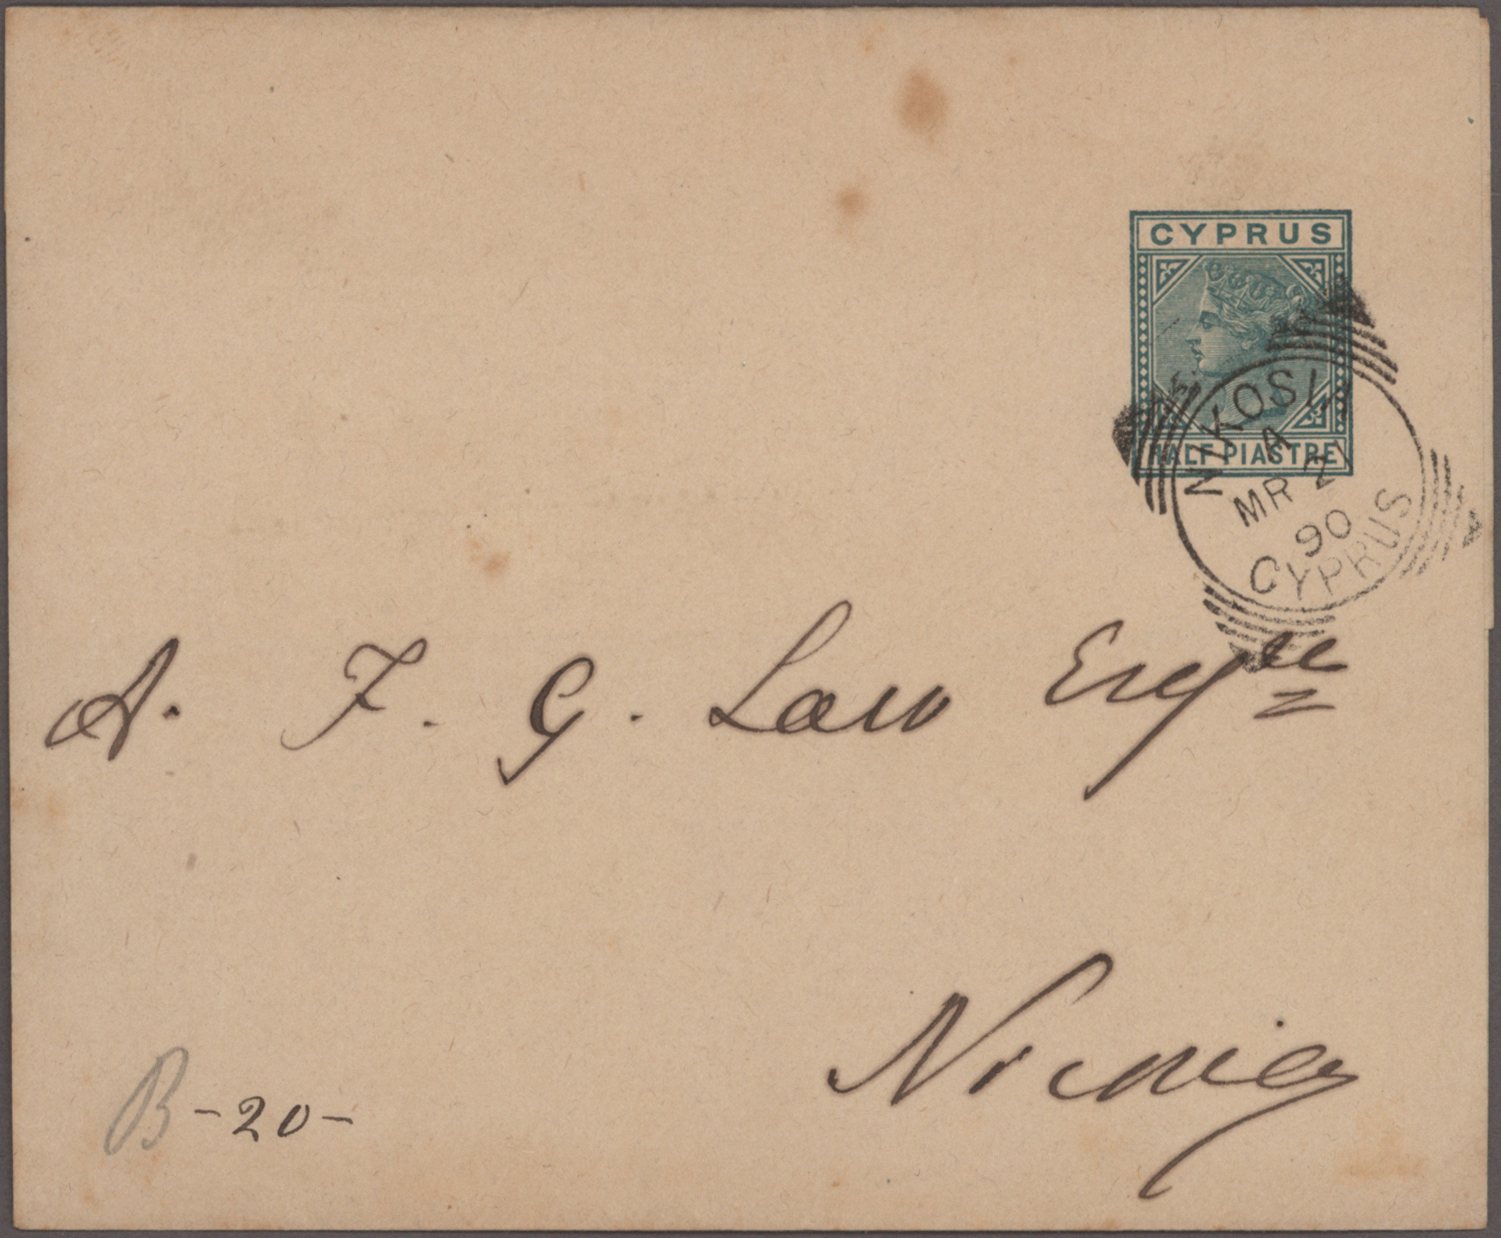 CYPRUS
HALF PIASTRE
NIKOSI
A
MR 2
90
CYPRUS
A. F. G. Law Esqre
Nicosia
B-20-